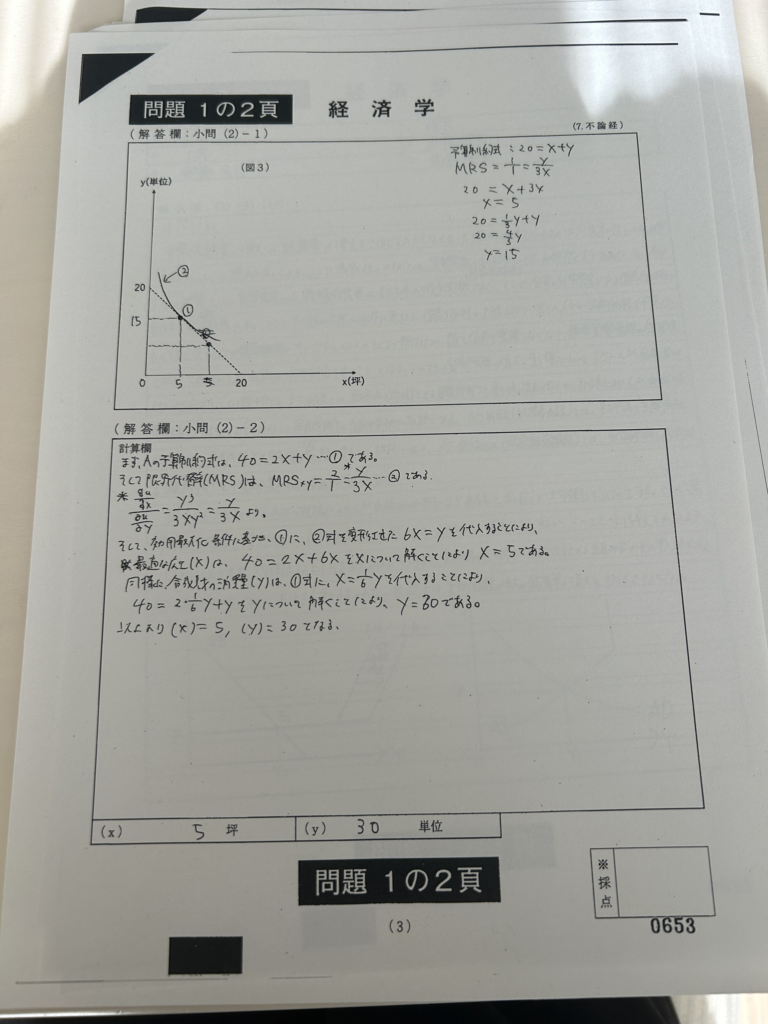 問題 1の2頁 経済学
(解答欄:小問(2)-1) (7.不論経)
(図3)
y(単位)
予算制約式:20=x+y
MRS=1/1=y/3x
20=x+3x
x=5
20=1/3y+y
20=4/3y
y=15
②
20
①
15
0 5 20 x(坪)
(解答欄:小問(2)-2)
計算欄
まず、Aの予算制約式は、40=2x+y…①である。
そして限界代替率(MRS)は、MRSxy=2/1=*y/3x…②である。
* ∂u/∂x / ∂u/∂y = y³/3xy² = y/3x より。
そして、効用最大化条件に基づき、①に、②式を変形した6x=yを代入することにより、
最適な(x)は、40=2x+6xをxについて解くことによりx=5である。
同様に、合成財の消費量(y)は、①式に、x=1/6yを代入することにより、
40=2・1/6y+yをyについて解くことにより、y=30である。
以上より(x)=5, (y)=30となる。
(x) 5 坪 (y) 30 単位
問題 1の2頁
(3)
※採点
0653